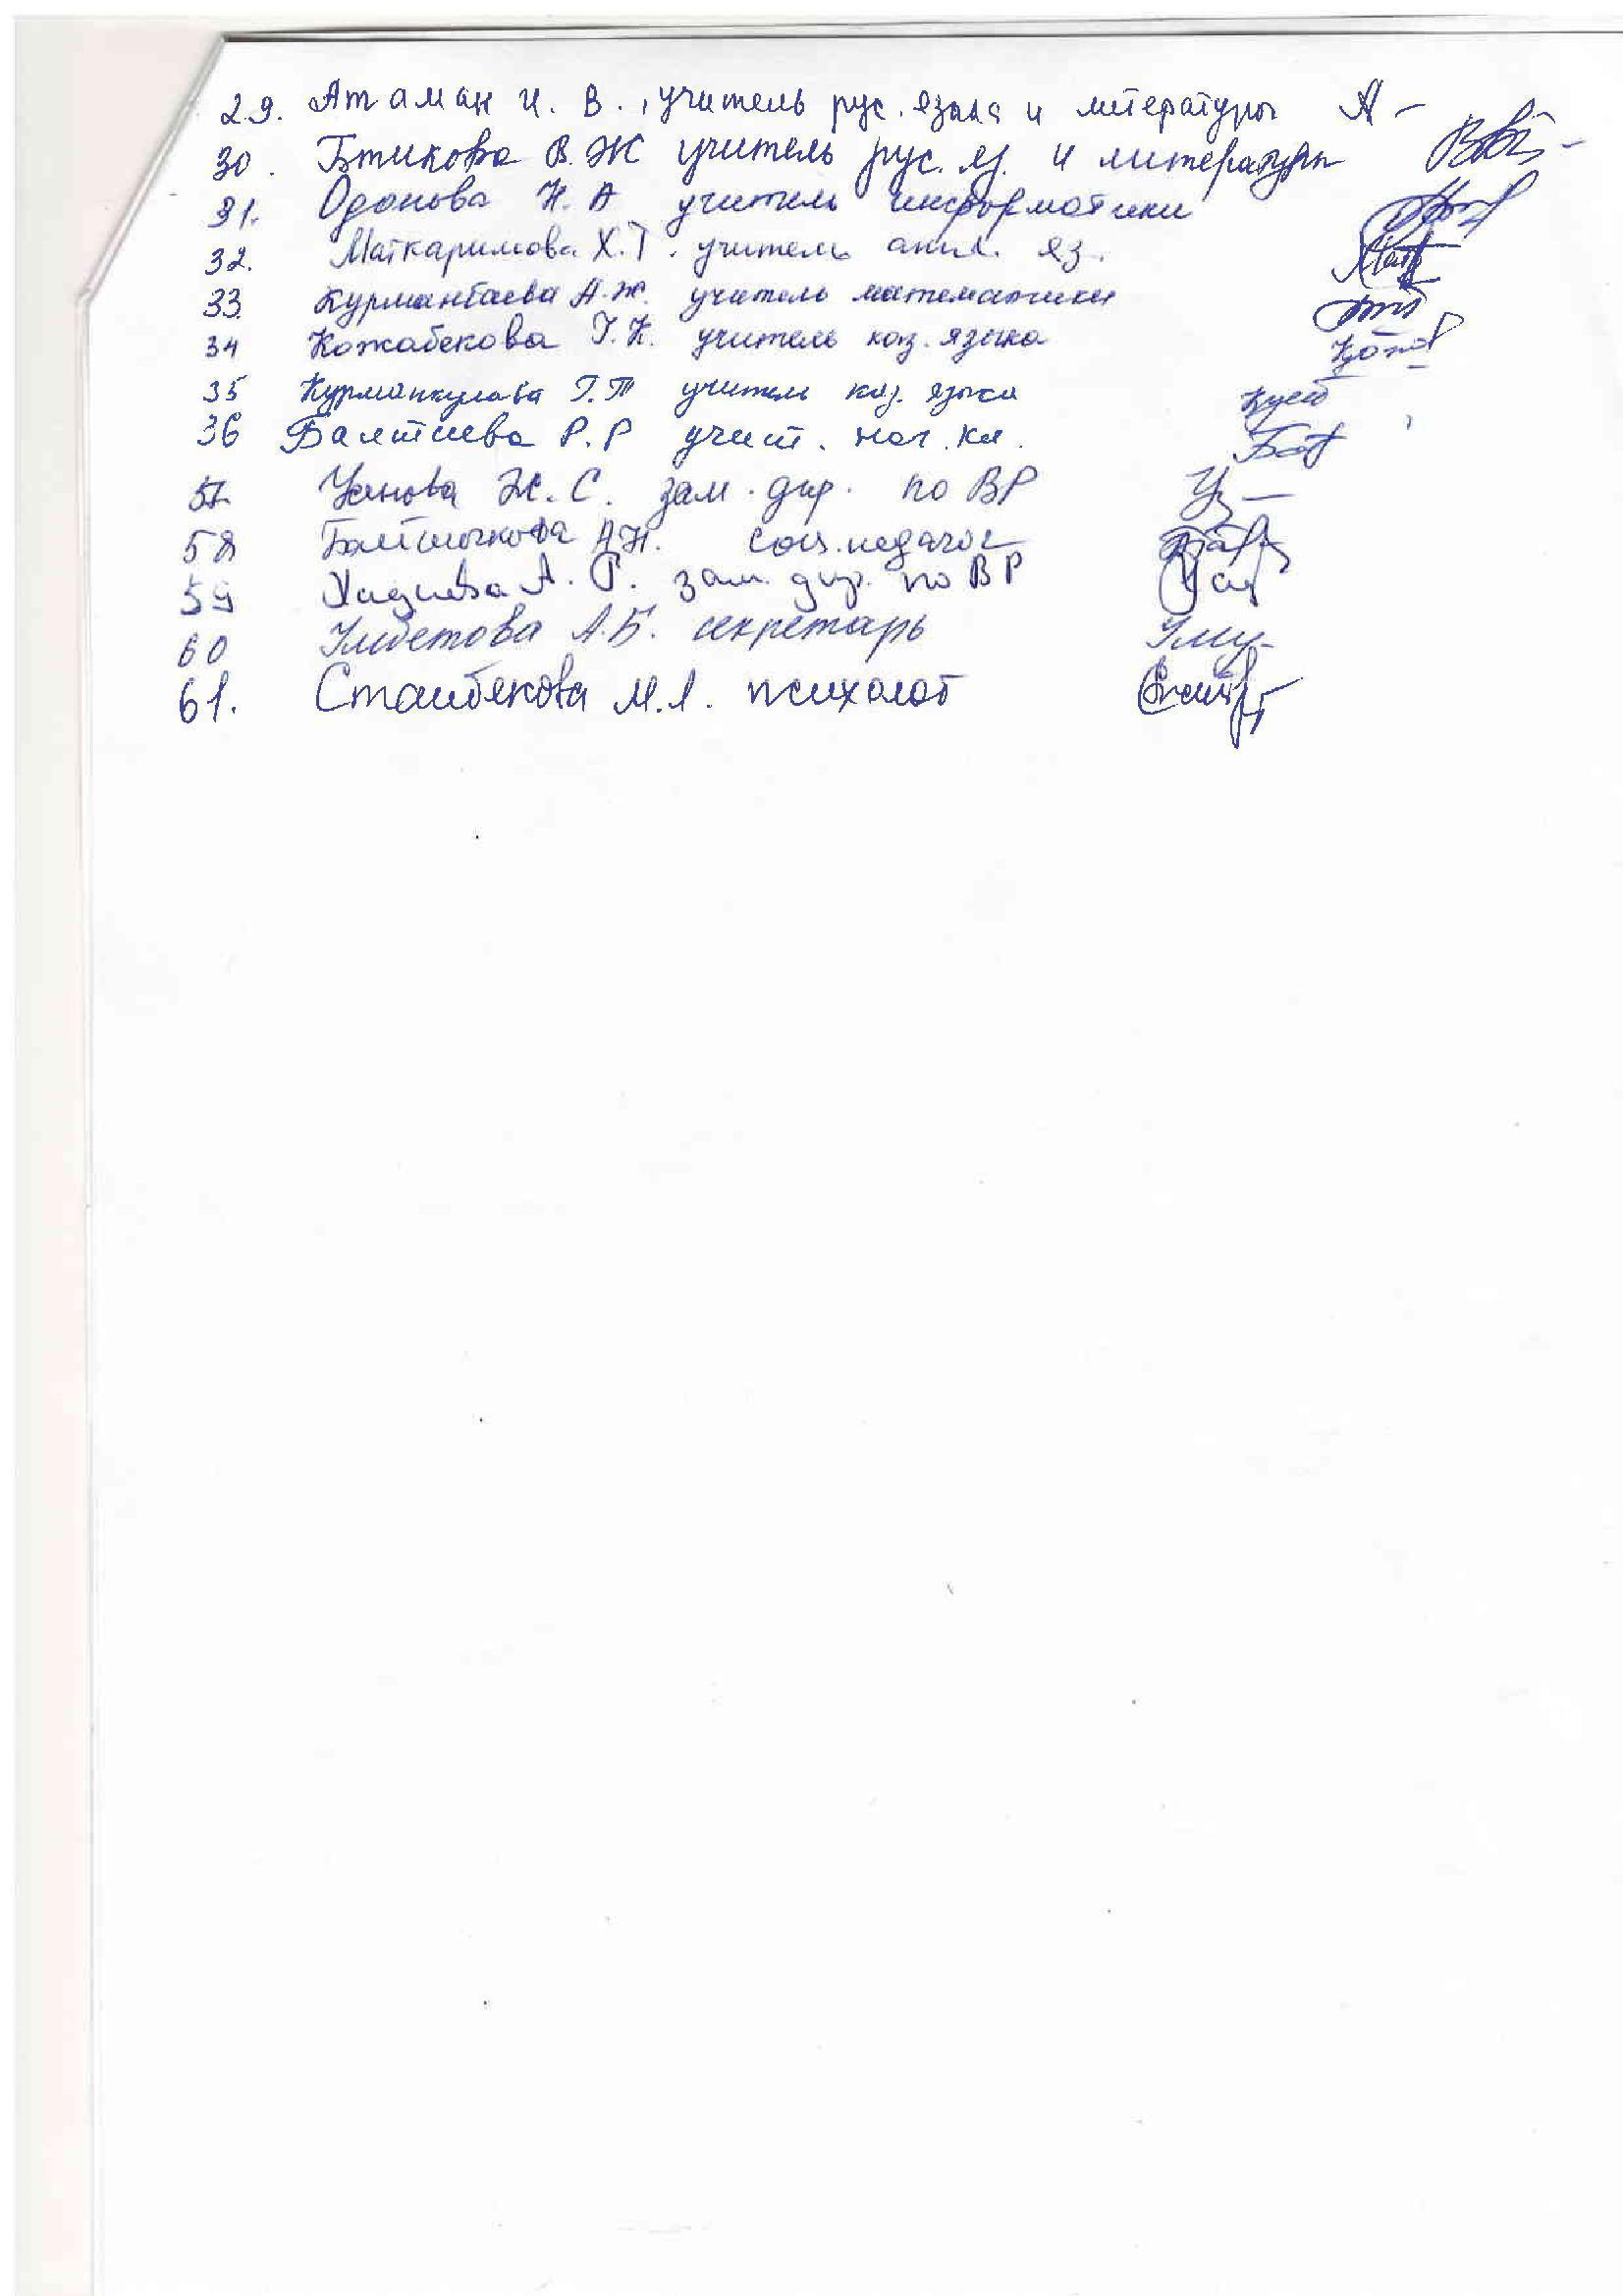 29. Атаман И. В., учитель рус. языка и литературы А -
30. Бтикова В. Ж учитель рус. яз. и литературы
31. Одонова Н. А учитель информатики
32. Маткаримова Х.Т. учитель англ. яз.
33. Курманбаева А.Ж. учитель математики
34 Кожабекова Г.К. учитель каз. языка
35 Курманкулова Г.Т учитель каз. языка
36 Балтиева Р.Р учит. нач. кл.
57 Ж.С. зам. дир. по ВР
58 А.Н. соц. педагог
59 А. Р. зам. дир. по ВР
60 Умбетова А.Б. секретарь
61. Стамбекова М.А. психолог